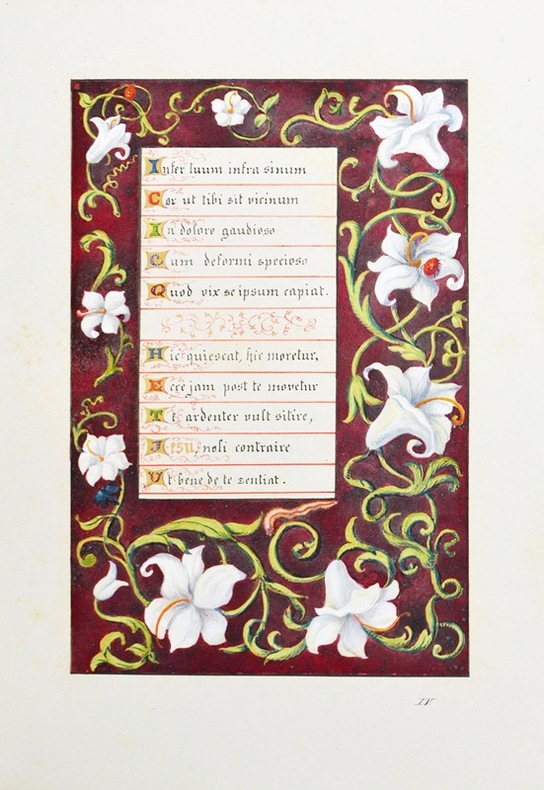 Infer tuum intra sinum
Cor ut tibi sit vicinum
In dolore gaudioso
Cum deformi specioso
Quod vix se ipsum capiat.
Hic quiescat, hic moretur,
Ecce jam post te movetur
Te ardenter vult sitire,
Jesu, noli contraire
Ut bene de te sentiat.
IV.